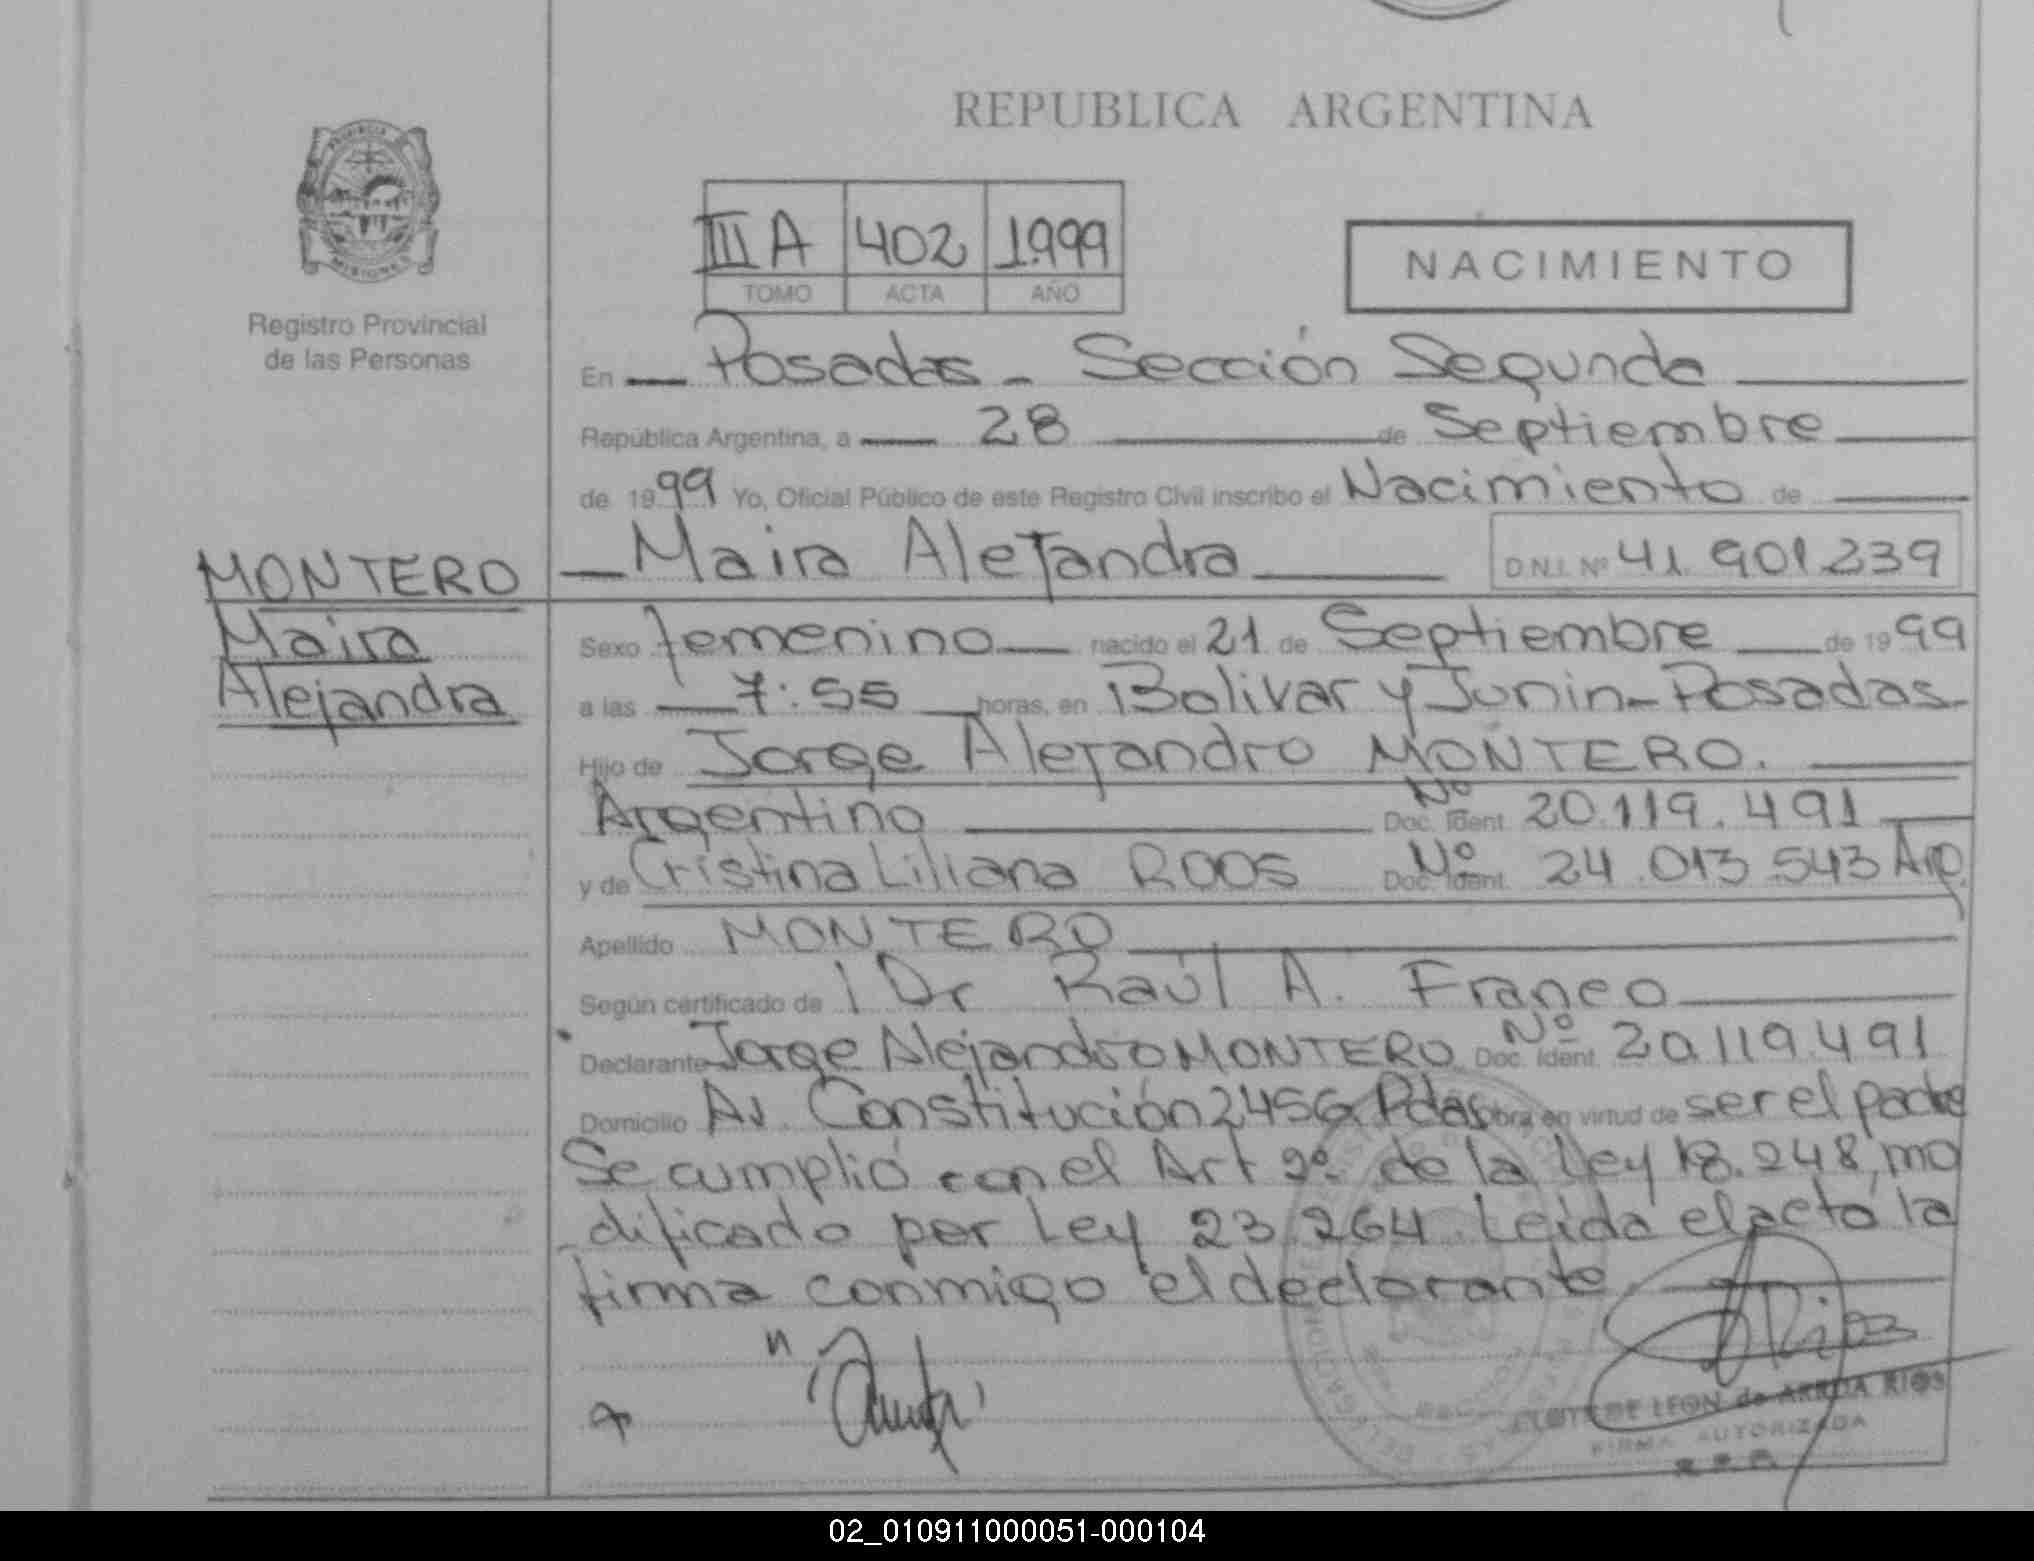 REPUBLICA ARGENTINA
PROVINCIA
MISIONES
Registro Provincial
de las Personas
III A 402 1.999
TOMO ACTA AÑO
NACIMIENTO
En Posadas - Sección Segunda
República Argentina, a 28 de Septiembre
de 1999 Yo, Oficial Público de este Registro Civil inscribo el Nacimiento de
Maira Alejandra D.N.I. Nº 41.901.239
MONTERO
Maira
Alejandra
Sexo femenino nacido el 21 de Septiembre de 1999
a las 7:55 horas, en Bolivar y Junin - Posadas -
Hijo de Jorge Alejandro MONTERO.
Argentino Doc. Ident. Nº 20.119.491
y de Cristina Liliana ROOS Doc. Ident. Nº 24.013.543 Arg.
Apellido MONTERO
Según certificado de Dr Raúl A. Franco
Declarante Jorge Alejandro MONTERO Doc. Ident. Nº 20.119.491
Domicilio Av. Constitución 2456 Pdas obra en virtud de ser el padre
Se cumplió con el Art 2º de la Ley 18.248, mo
dificado por Ley 23.264. Leida el acta la
firma conmigo el declarante
CLOTILDE LEON de ARRUA RIOS
FIRMA AUTORIZADA
02_010911000051-000104